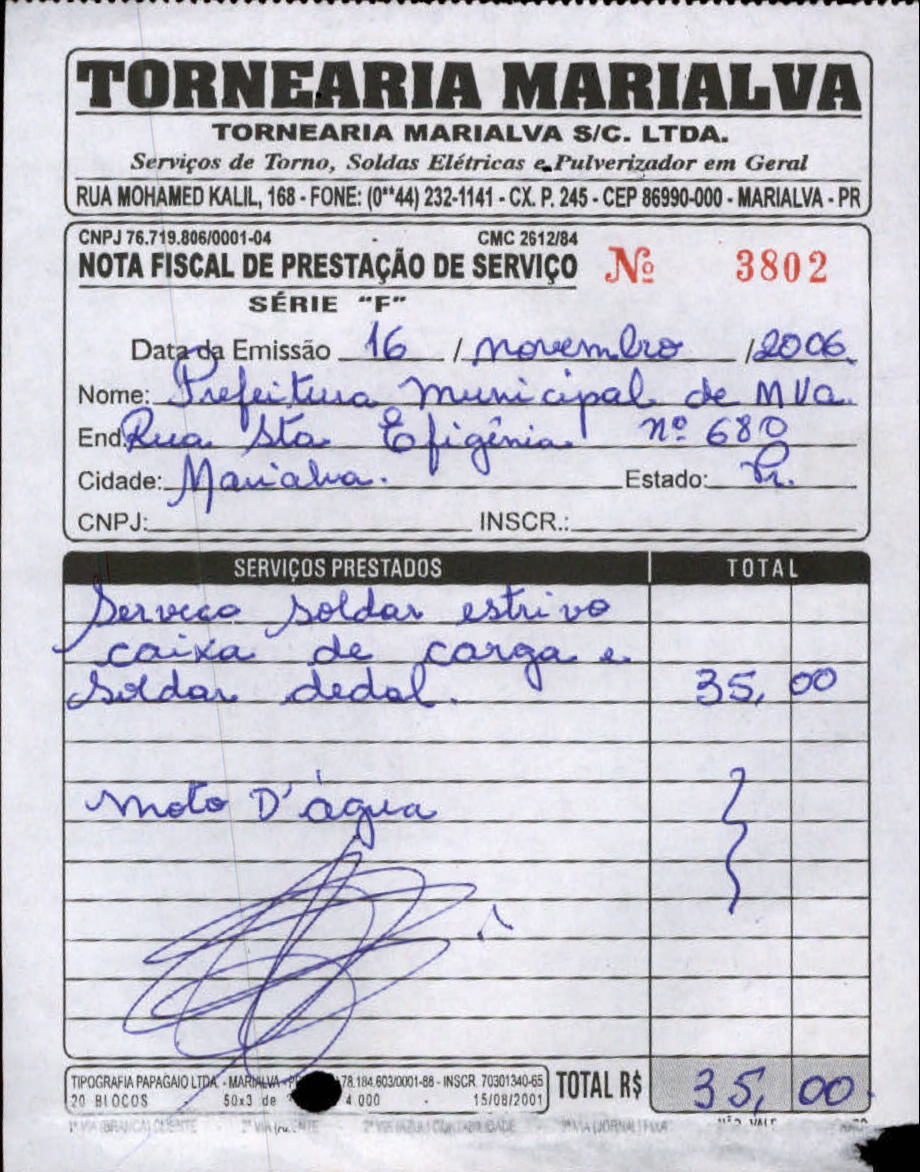 TORNEARIA MARIALVA
TORNEARIA MARIALVA S/C. LTDA.
Serviços de Torno, Soldas Elétricas e Pulverizador em Geral
RUA MOHAMED KALIL, 168 - FONE: (0**44) 232-1141 - CX. P. 245 - CEP 86990-000 - MARIALVA - PR
CNPJ 76.719.806/0001-04 CMC 2612/84
NOTA FISCAL DE PRESTAÇÃO DE SERVIÇO Nº 3802
SÉRIE "F"
Data da Emissão 16 / novembro /2006.
Nome: Prefeitura Municipal de MVa.
End. Rua Sta Efigênia nº 680
Cidade: Marialva. Estado: Pr.
CNPJ: INSCR.:
SERVIÇOS PRESTADOS TOTAL
Serveco soldar estrivo
caixa de carga e
soldar dedal. 35,00
moto D'água
TIPOGRAFIA PAPAGAIO LTDA. - MARIALVA - 78.184.603/0001-88 - INSCR. 70301340-65
20 BLOCOS 50x3 de 4.000 - 15/08/2001
TOTAL R$ 35,00.
1ª VIA (BRANCA) CLIENTE - 2ª VIA - 3ª VIA (JORNAL) FIXA NÃO VALE